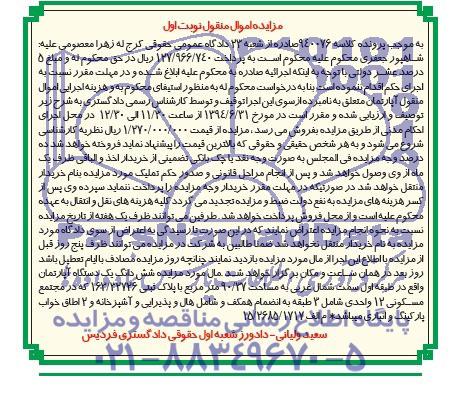 مزایده اموال منقول نوبت اول
به موجب پرونده کلاسه ۹۴۰۰۷۶ صادره از شعبه ۲۳ دادگاه عمومی حقوقی کرج له زهرا معصومی علیه:
شاهپور جعفری محکوم علیه محکوم است به پرداخت ۱۲۷/۹۶۶/۷۴۰ ریال در حق محکوم له و مبلغ ۵
درصد عشر دولتی با توجه به اینکه اجرائیه صادره به محکوم علیه ابلاغ شده و در مهلت مقرر نسبت به
اجرای حکم اقدام ننموده است بنا به درخواست محکوم له به منظور استیفای محکوم به و هزینه اجرایی اموال
منقول آپارتمان متعلق به نامبرده از سوی این اجرا توقیف و توسط کارشناس رسمی دادگستری به شرح زیر
توصیف و ارزیابی شده و مقرر است در مورخ ۱۳۹۴/۶/۳۱ از ساعت ۱۱/۳۰ الی ۱۲/۳۰ در محل اجرای
احکام مدنی از طریق مزایده بفروش می رسد. مزایده از قیمت ۱/۲۷۰/۰۰۰/۰۰۰ ریال نظریه کارشناسی
شروع می شود و به هر شخص حقیقی و حقوقی که بالاترین قیمت را پیشنهاد نماید فروخته خواهد شد ده
درصد وجه مزایده فی المجلس به صورت وجه نقد یا چک بانکی تضمینی از خریدار اخذ و الباقی ظرف یک
ماه از وی وصول خواهد شد و پس از انجام مراحل قانونی و صدور حکم تملیک مورد مزایده بنام خریدار
منتقل خواهد شد در صورتیکه در مهلت مقرر خریدار وجه مزایده را پرداخت ننماید سپرده وی پس از
کسر هزینه های مزایده به نفع دولت ضبط و مزایده تجدید می گردد کلیه هزینه های نقل و انتقال به عهده
محکوم علیه است و از محل فروش پرداخت خواهد شد. طرفین می توانند ظرف یک هفته از تاریخ مزایده
نسبت به نحوه انجام مزایده اعتراض نمایند که در این صورت تا رسیدگی به اعتراض از سوی دادگاه مورد
مزایده به نام خریدار منتقل نخواهد شد ضمنا طالبین به شرکت در مزایده می توانند ظرف پنج روز قبل
از مزایده با اطلاع این اجرا از مال مورد مزایده بازدید نمایند چنانچه روز مزایده مصادف با ایام تعطیل باشد
روز بعد در همان ساعت و مکان برگزار خواهد شد. مال مورد مزایده شش دانگ یک دستگاه آپارتمان
واقع در طبقه اول سمت شمال غربی به مساحت ۹۰/۲۷ متر مربع با پلاک ثبتی ۱۶۳/۲۲۷۳۶ که در مجتمع
مسکونی ۱۲ واحدی شامل ۳ طبقه به انضمام همکف و شامل هال و پذیرایی و آشپزخانه و ۲ اطاق خواب
پارکینگ و انباری میباشد* م الف ۱۵۲۶۸۵/۱۷۱۷
سعید ولیانی - دادورز شعبه اول حقوقی دادگستری فردیس
پایگاه اطلاع رسانی مناقصه و مزایده
۰۲۱-۸۸۳۴۹۶۷۰-۵